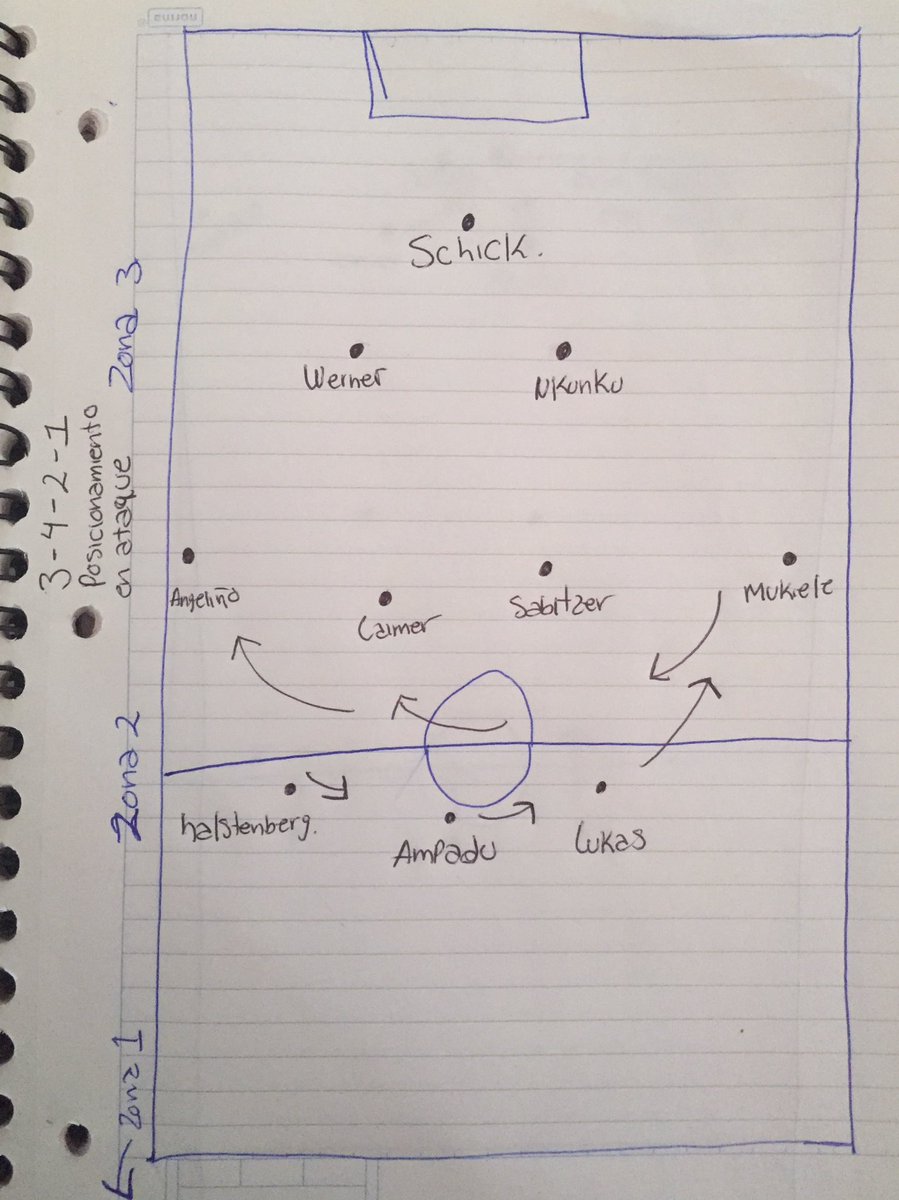 norma
Schick.
Werner
Nkunku
Angeliño
Laimer
Sabitzer
Mukiele
halstenberg.
Ampadu
Lukas
3-4-2-1
Posicionamiento
en ataque
Zona 3
Zona 2
Zona 1